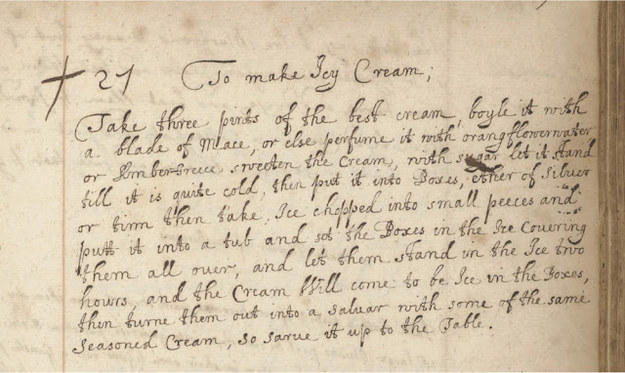 27 To make Icy Cream;
Take three pints of the best cream, boyle it with
a blade of Mace, or else perfume it with orang flower water
or Ambergreece sweeten the Cream, with sugar let it stand
till it is quite cold, then put it into Boxes, ether of Silver
or tinn then take, Ice chopped into small peeces and
putt it into a tub and set the Boxes in the Ice Covering
them all over, and let them stand in the Ice two
hours, and the Cream Will come to be Ice in the Boxes,
then turne them out into a salvar with some of the same
seasoned Cream, so sarve it up to the Table.